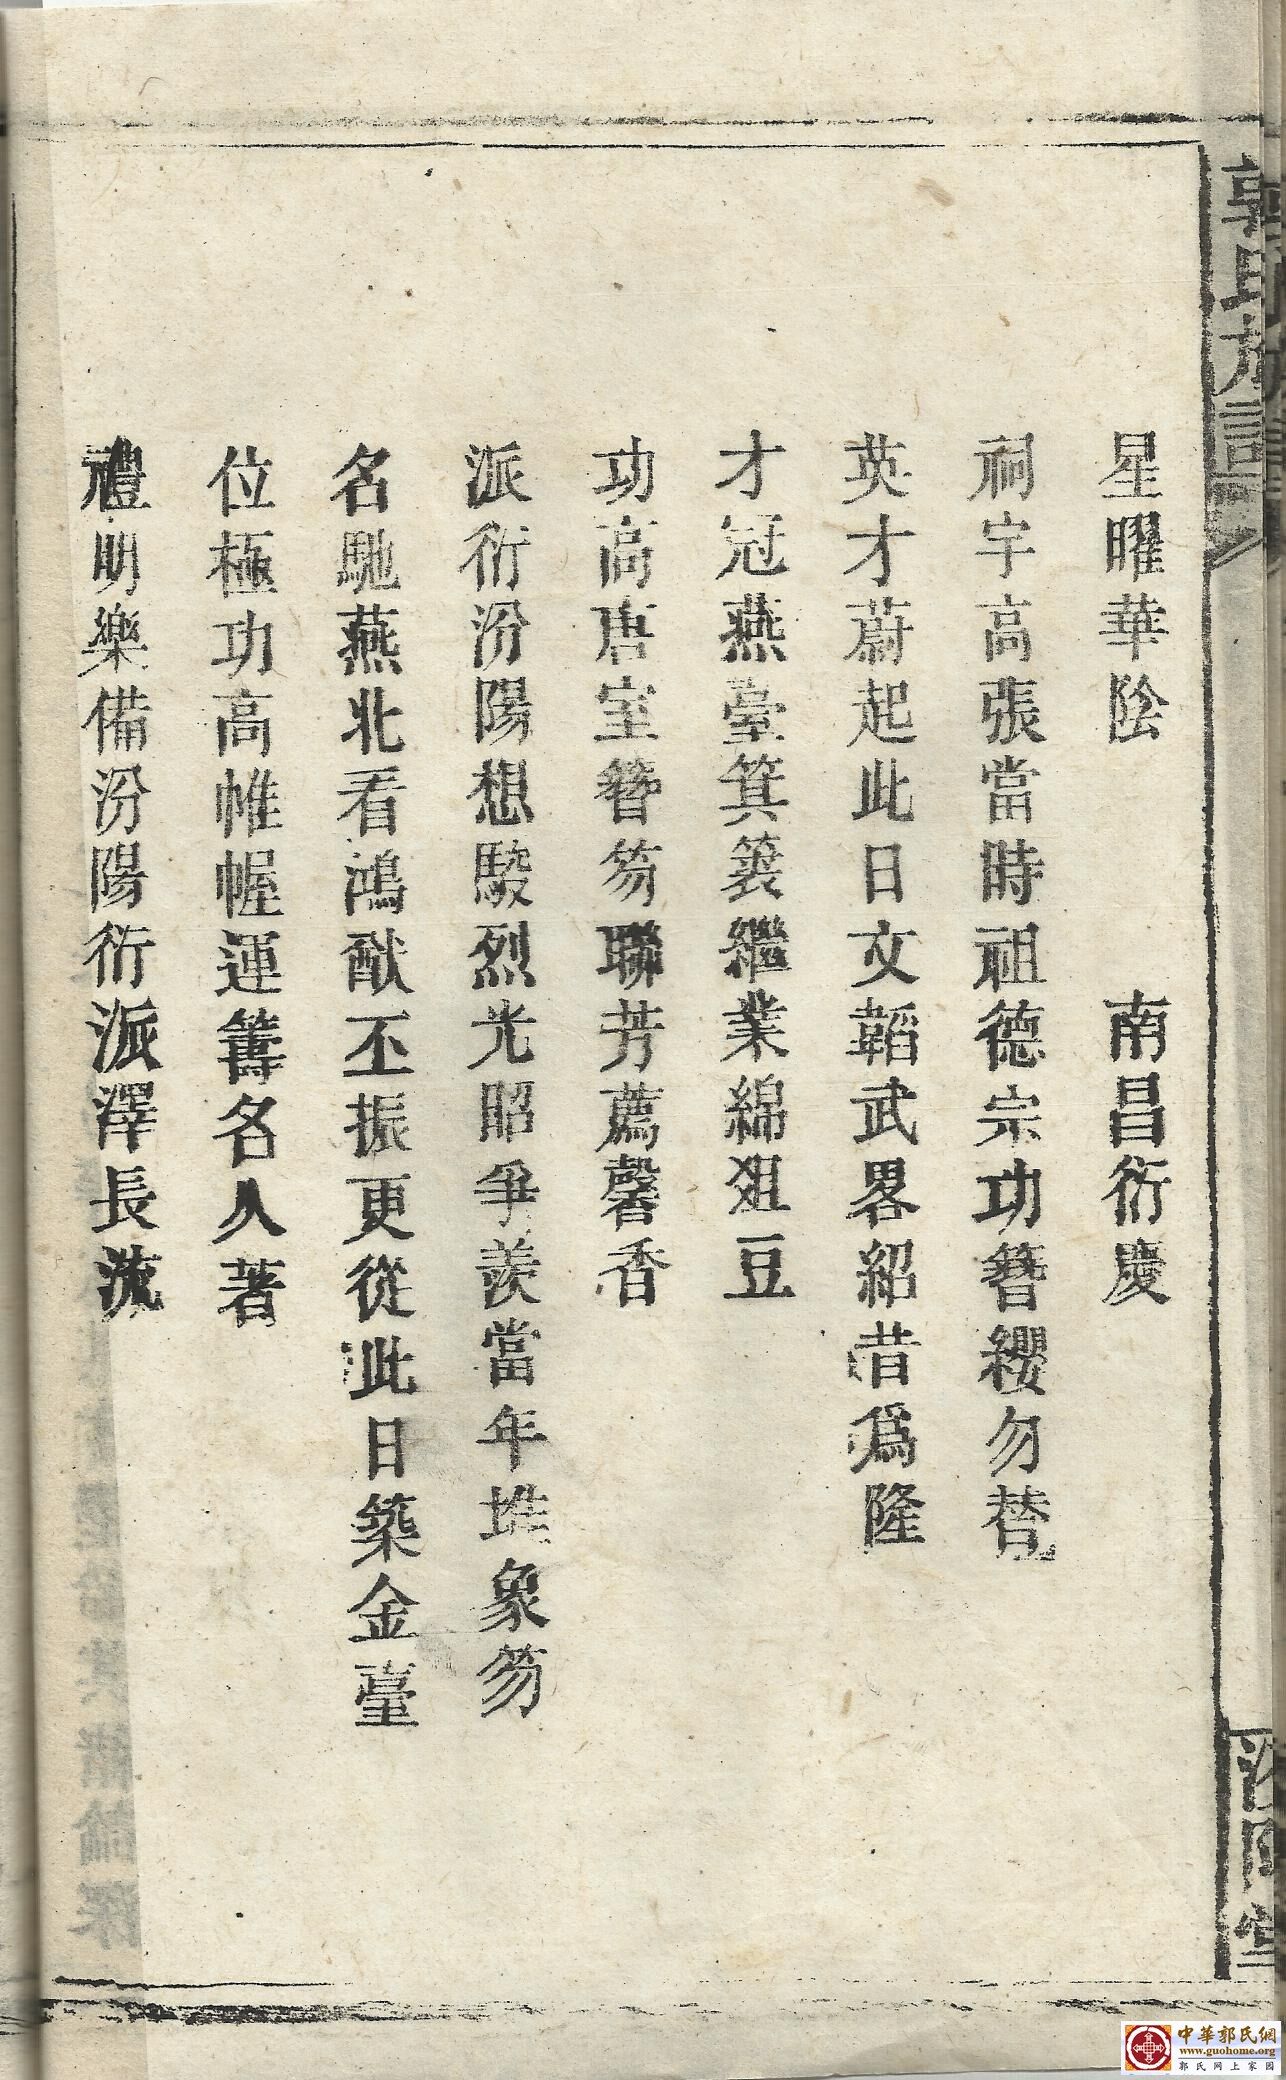 郭氏族譜
汾陽堂
星曜華陰　南昌衍慶
祠宇高張當時祖德宗功簪纓勿替
英才蔚起此日文韜武畧紹昔爲隆
才冠燕臺箕裘繼業綿俎豆
功高唐室簪笏聯芳薦馨香
派衍汾陽想駿烈光昭爭羨當年堆象笏
名馳燕北看鴻猷丕振更從此日築金臺
位極功高帷幄運籌名人著
禮明樂備汾陽衍派澤長流
中華郭氏網
www.guohome.org
郭氏网上家园